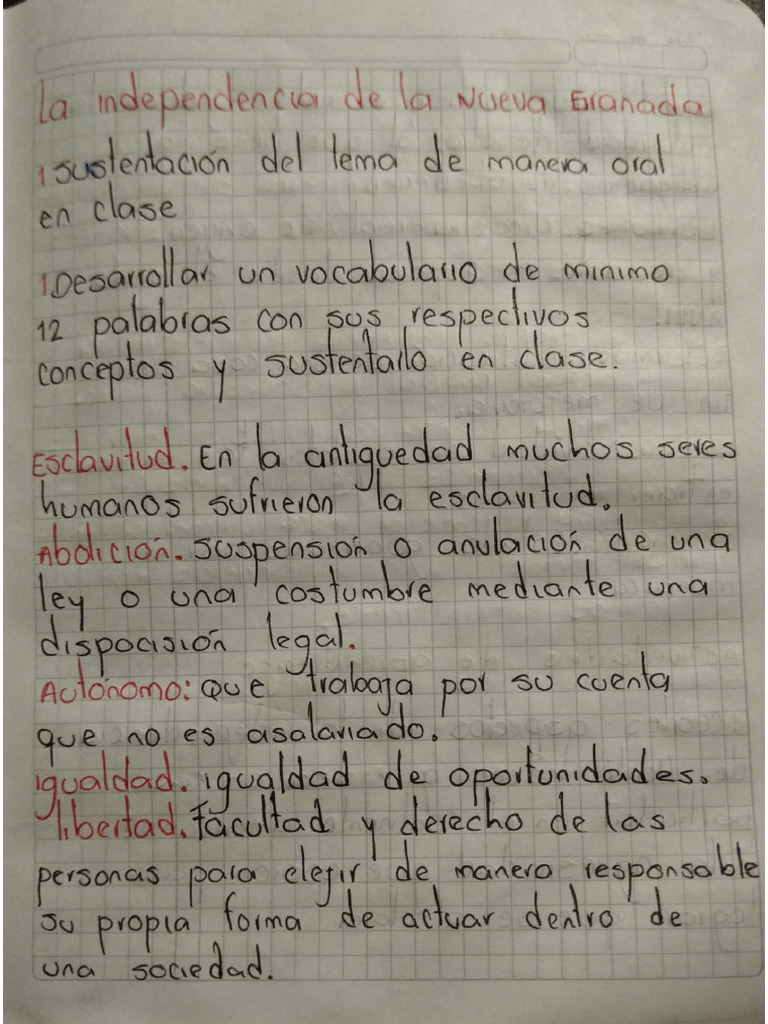 la independencia de la Nueva Granada
1 sustentación del tema de manera oral
en clase
1 Desarrollar un vocabulario de minimo
12 palabras con sus respectivos
conceptos y sustentarlo en clase.
Esclavitud. En la antiguedad muchos seres
humanos sufrieron la esclavitud.
Abolición. suspensión o anulación de una
ley o una costumbre mediante una
disposición legal.
Autónomo: Que trabaja por su cuenta
que no es asalariado.
igualdad. igualdad de oportunidades.
libertad. facultad y derecho de las
personas para elejir de manera responsable
su propia forma de actuar dentro de
una sociedad.